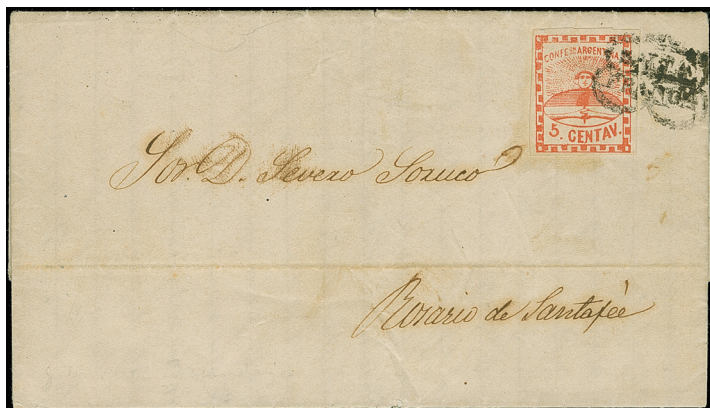 CONFEON ARGENTINA
5. CENTAV.
FRANCA
Sor. D. Severo Soruco
Rosario de Santafée